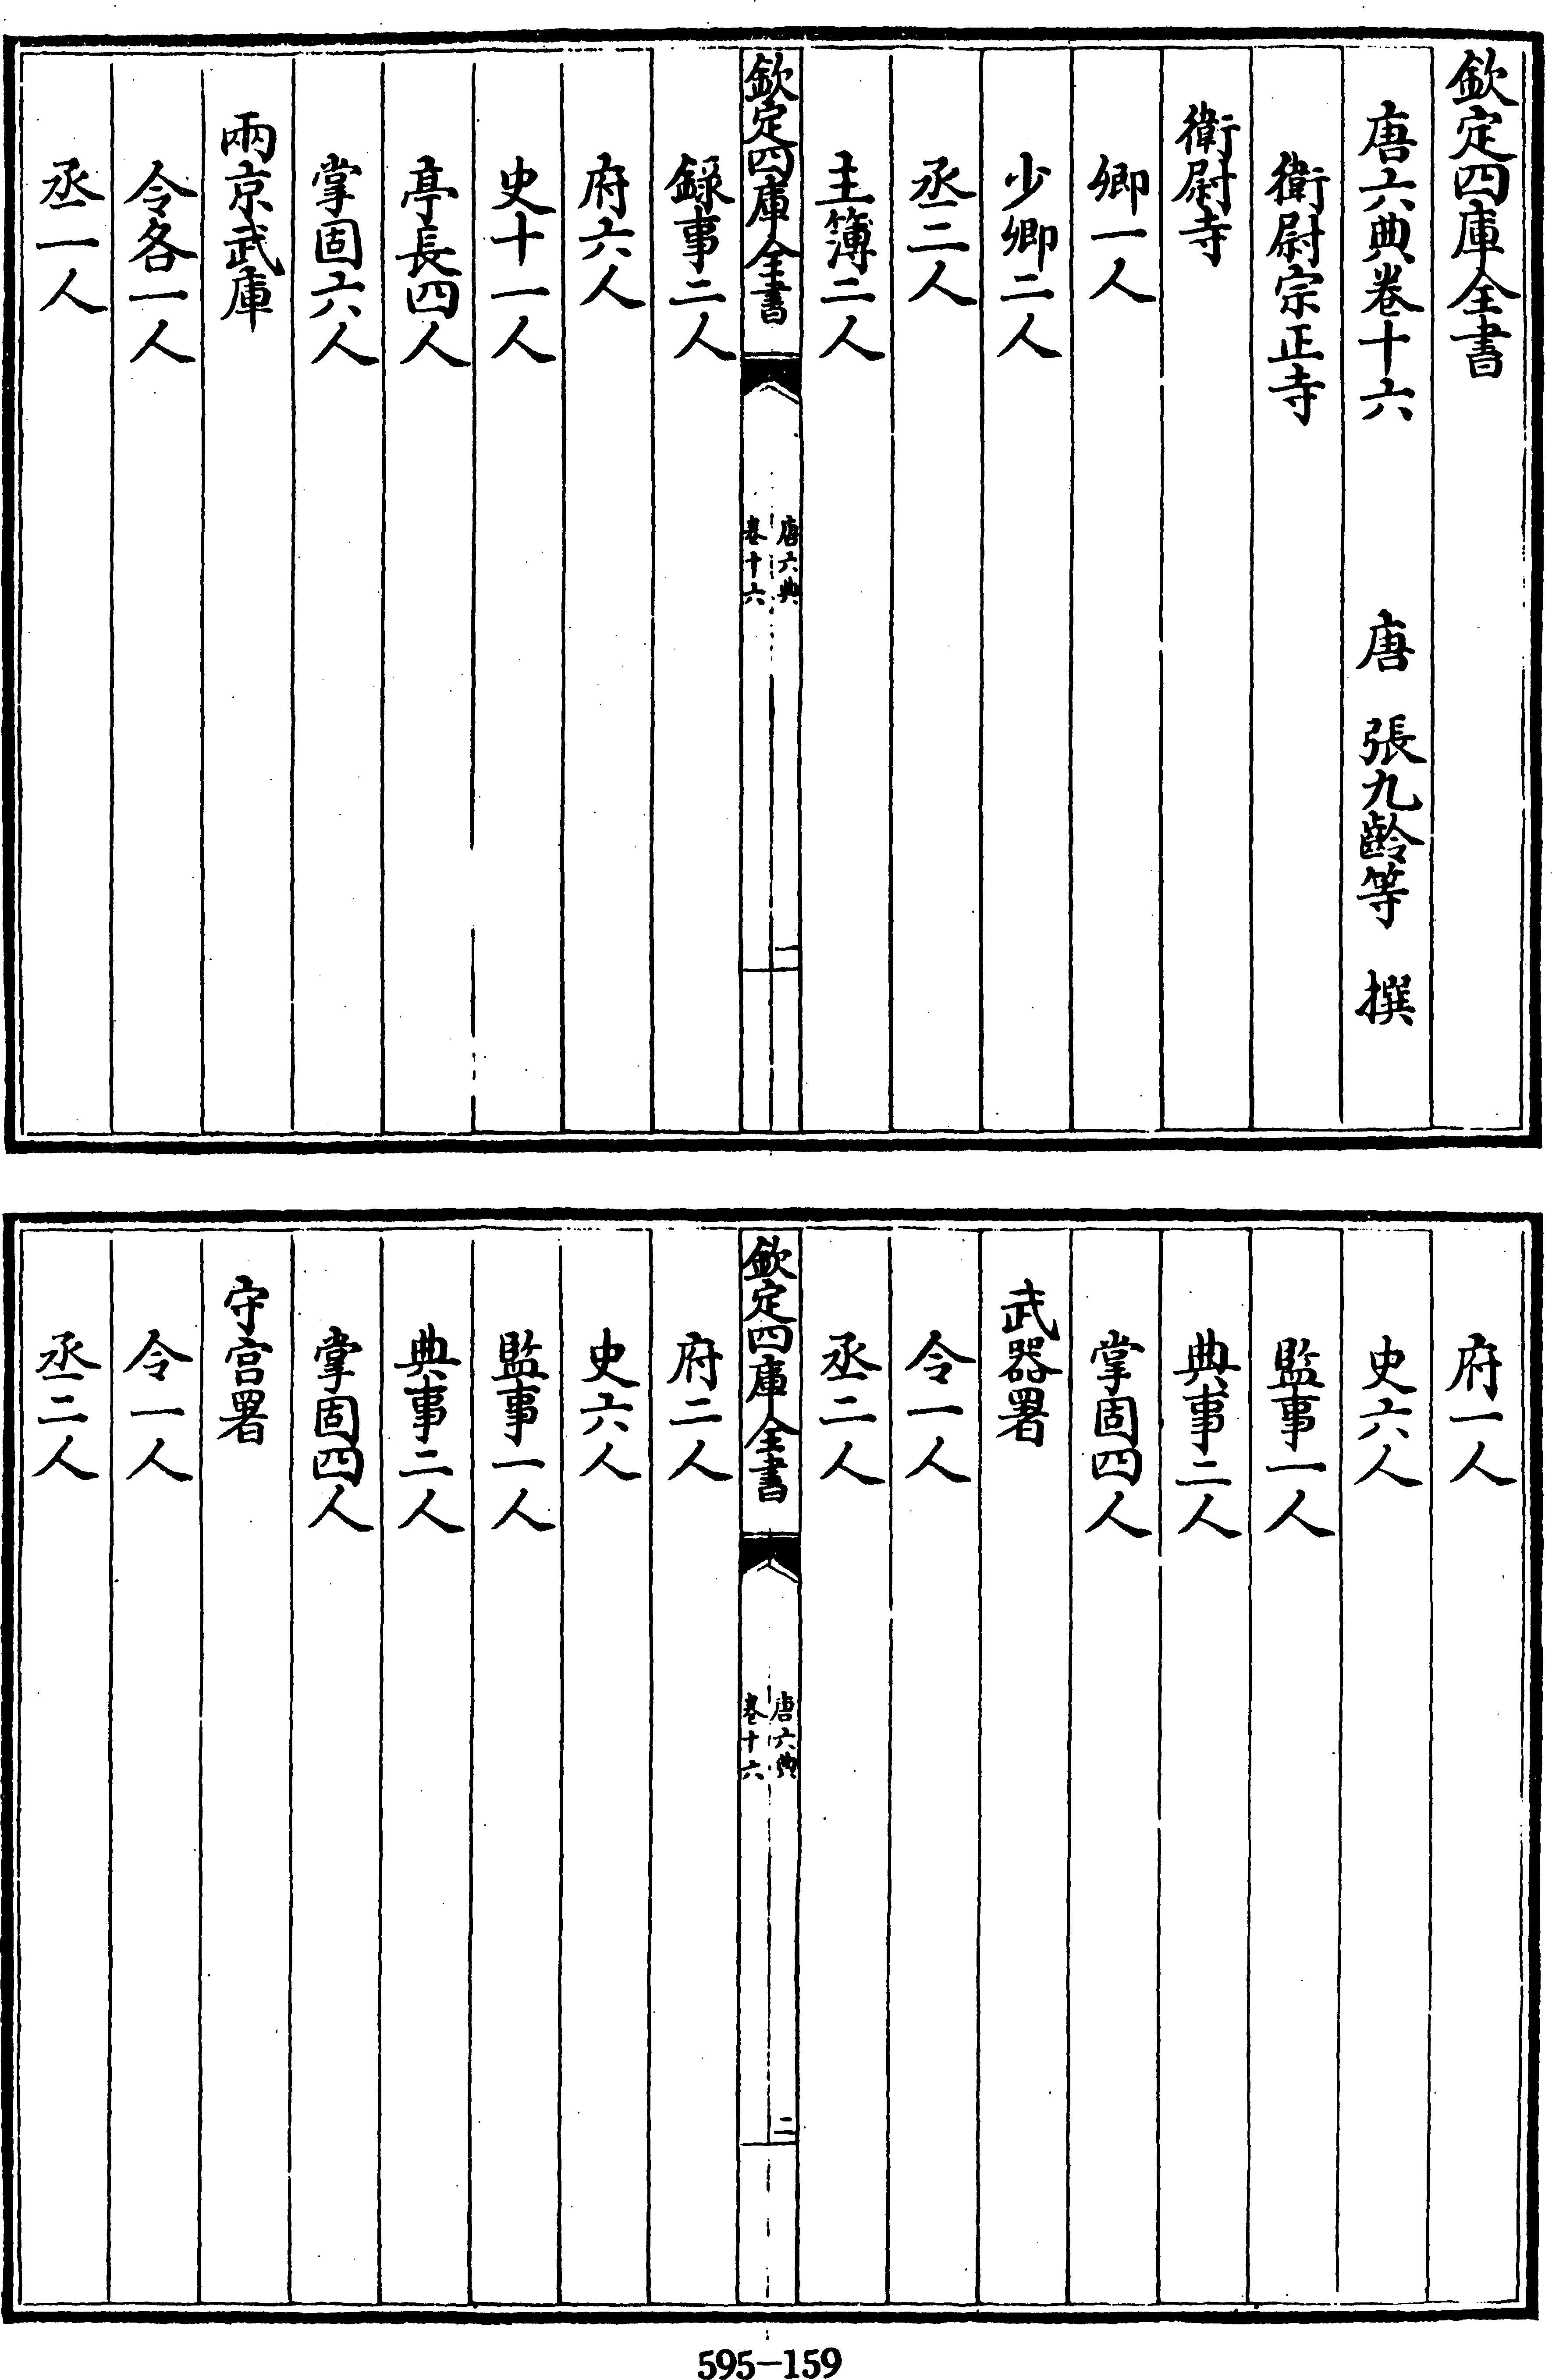 欽定四庫全書
唐六典卷十六　唐　張九齡等　撰
衛尉宗正寺
衛尉寺
卿一人
少卿二人
丞二人
主簿二人
欽定四庫全書
唐六典
卷十六
一
錄事二人
府六人
史十一人
亭長四人
掌固六人
兩京武庫
令各一人
丞一人
府一人
史六人
監事一人
典事二人
掌固四人
武器署
令一人
丞二人
欽定四庫全書
唐六典
卷十六
二
府二人
史六人
監事一人
典事二人
掌固四人
守宮署
令一人
丞二人
595-159